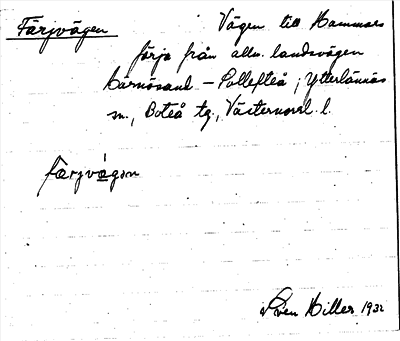 Färjvägen Vägen till Hammars
färja från allm. landsvägen
Härnösand – Sollefteå, Ytterlännäs
sn., Boteå tg., Västernorrl. l.
färjvägən
Sven Hiller 1932